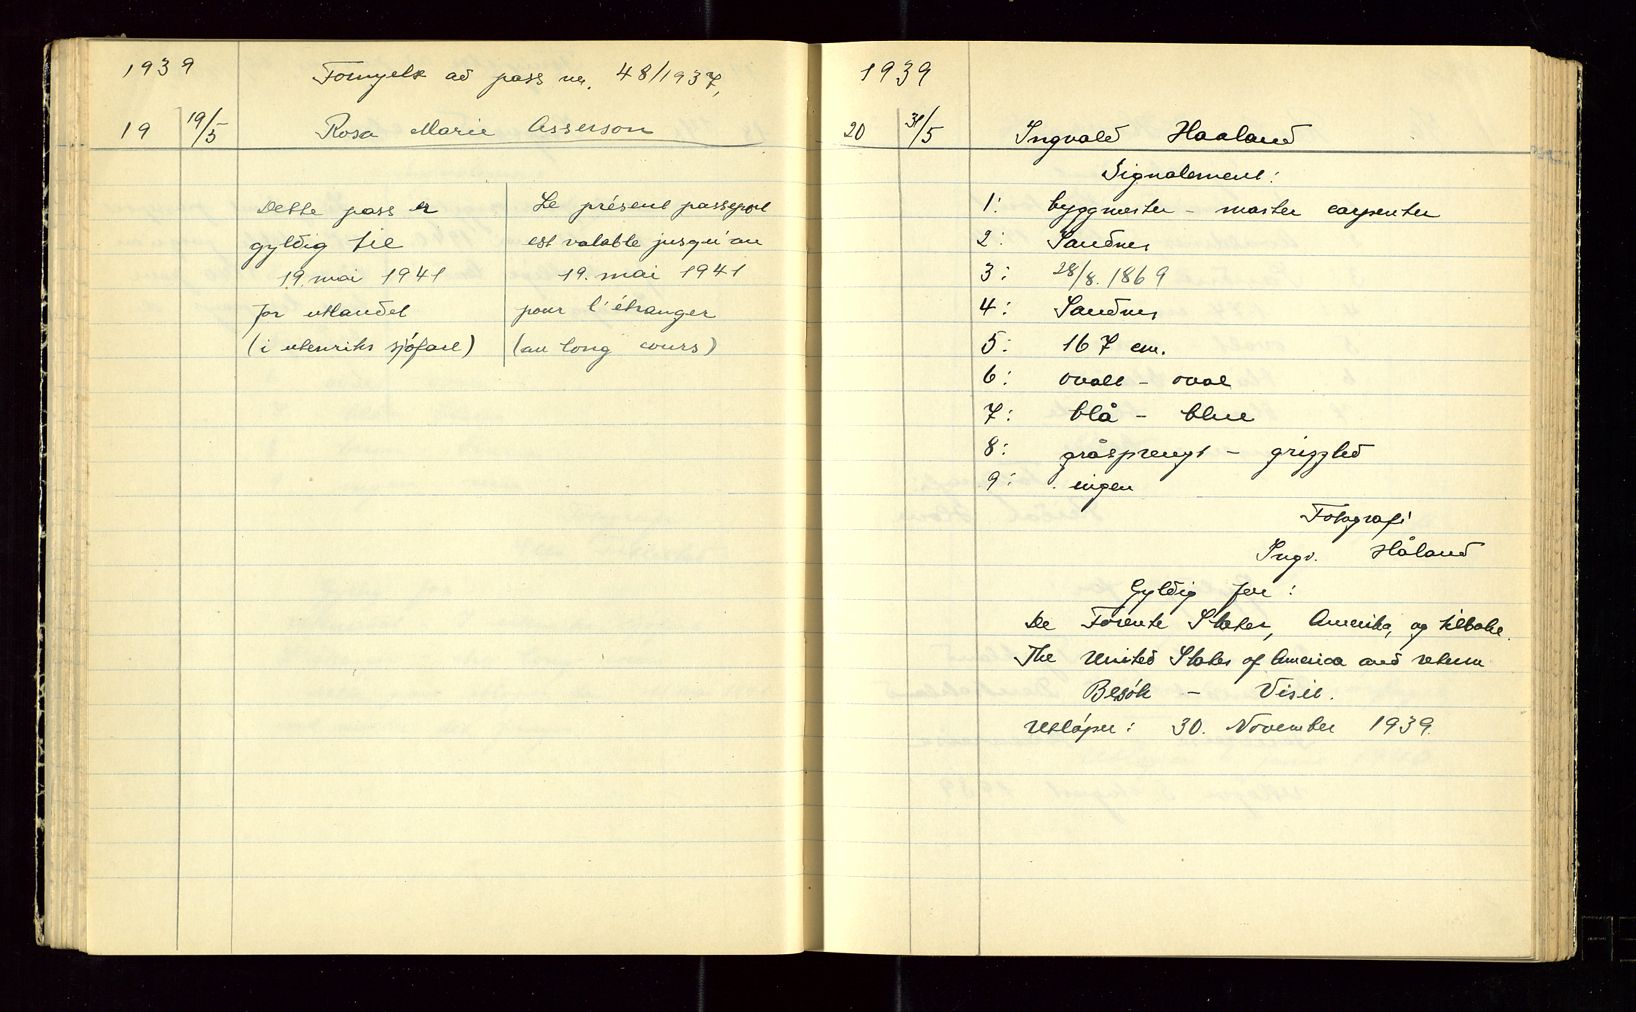 1939
Fornyelse av pass nr. 48/1937,
19 19/5 Rosa Marie Asserson
Dette pass er
gyldig til
19. mai 1941
for utlandet
(i utenriks sjøfart)
Le présent passeport
est valable jusqu'au
19. mai 1941
pour l'étranger
(au long cours)
1939
20 31/5 Ingvald Haaland
Signalement:
1: byggmester - master carpenter
2: Sandnes
3: 28/8. 1869
4: Sandnes
5: 167 cm.
6: ovalt - oval
7: blå - blue
8: gråsprengt - grizzled
9: ingen
Fotografi
Ingv. Håland
Gyldig for:
De Forente Stater, Amerika, og tilbake.
The United States of America and return
Besøk - Visit.
Utløper: 30. November 1939.